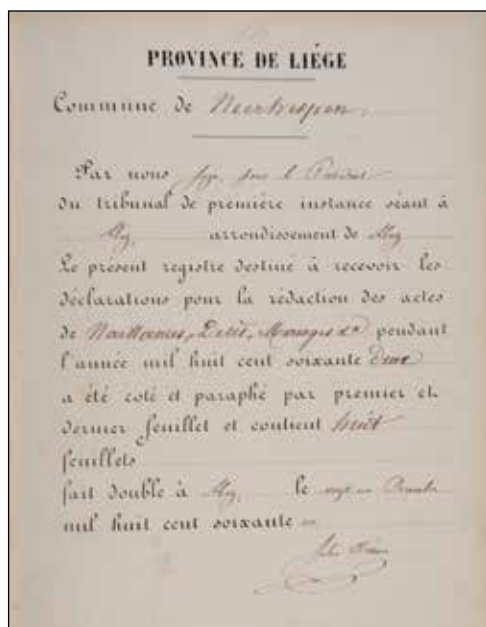 PROVINCE DE LIÉGE
Commune de Neerhespen,
Par nous juge pour le Président
du tribunal de première instance séant à
Huy, arrondissement de Huy
Le présent registre destiné à recevoir les
déclarations pour la rédaction des actes
de Naissances, Décès, Mariages &a pendant
l'année mil huit cent soixante deux
a été coté et paraphé par premier et
dernier feuillet et contient huit
feuillets
fait double à Huy, le Décembre
mil huit cent soixante un